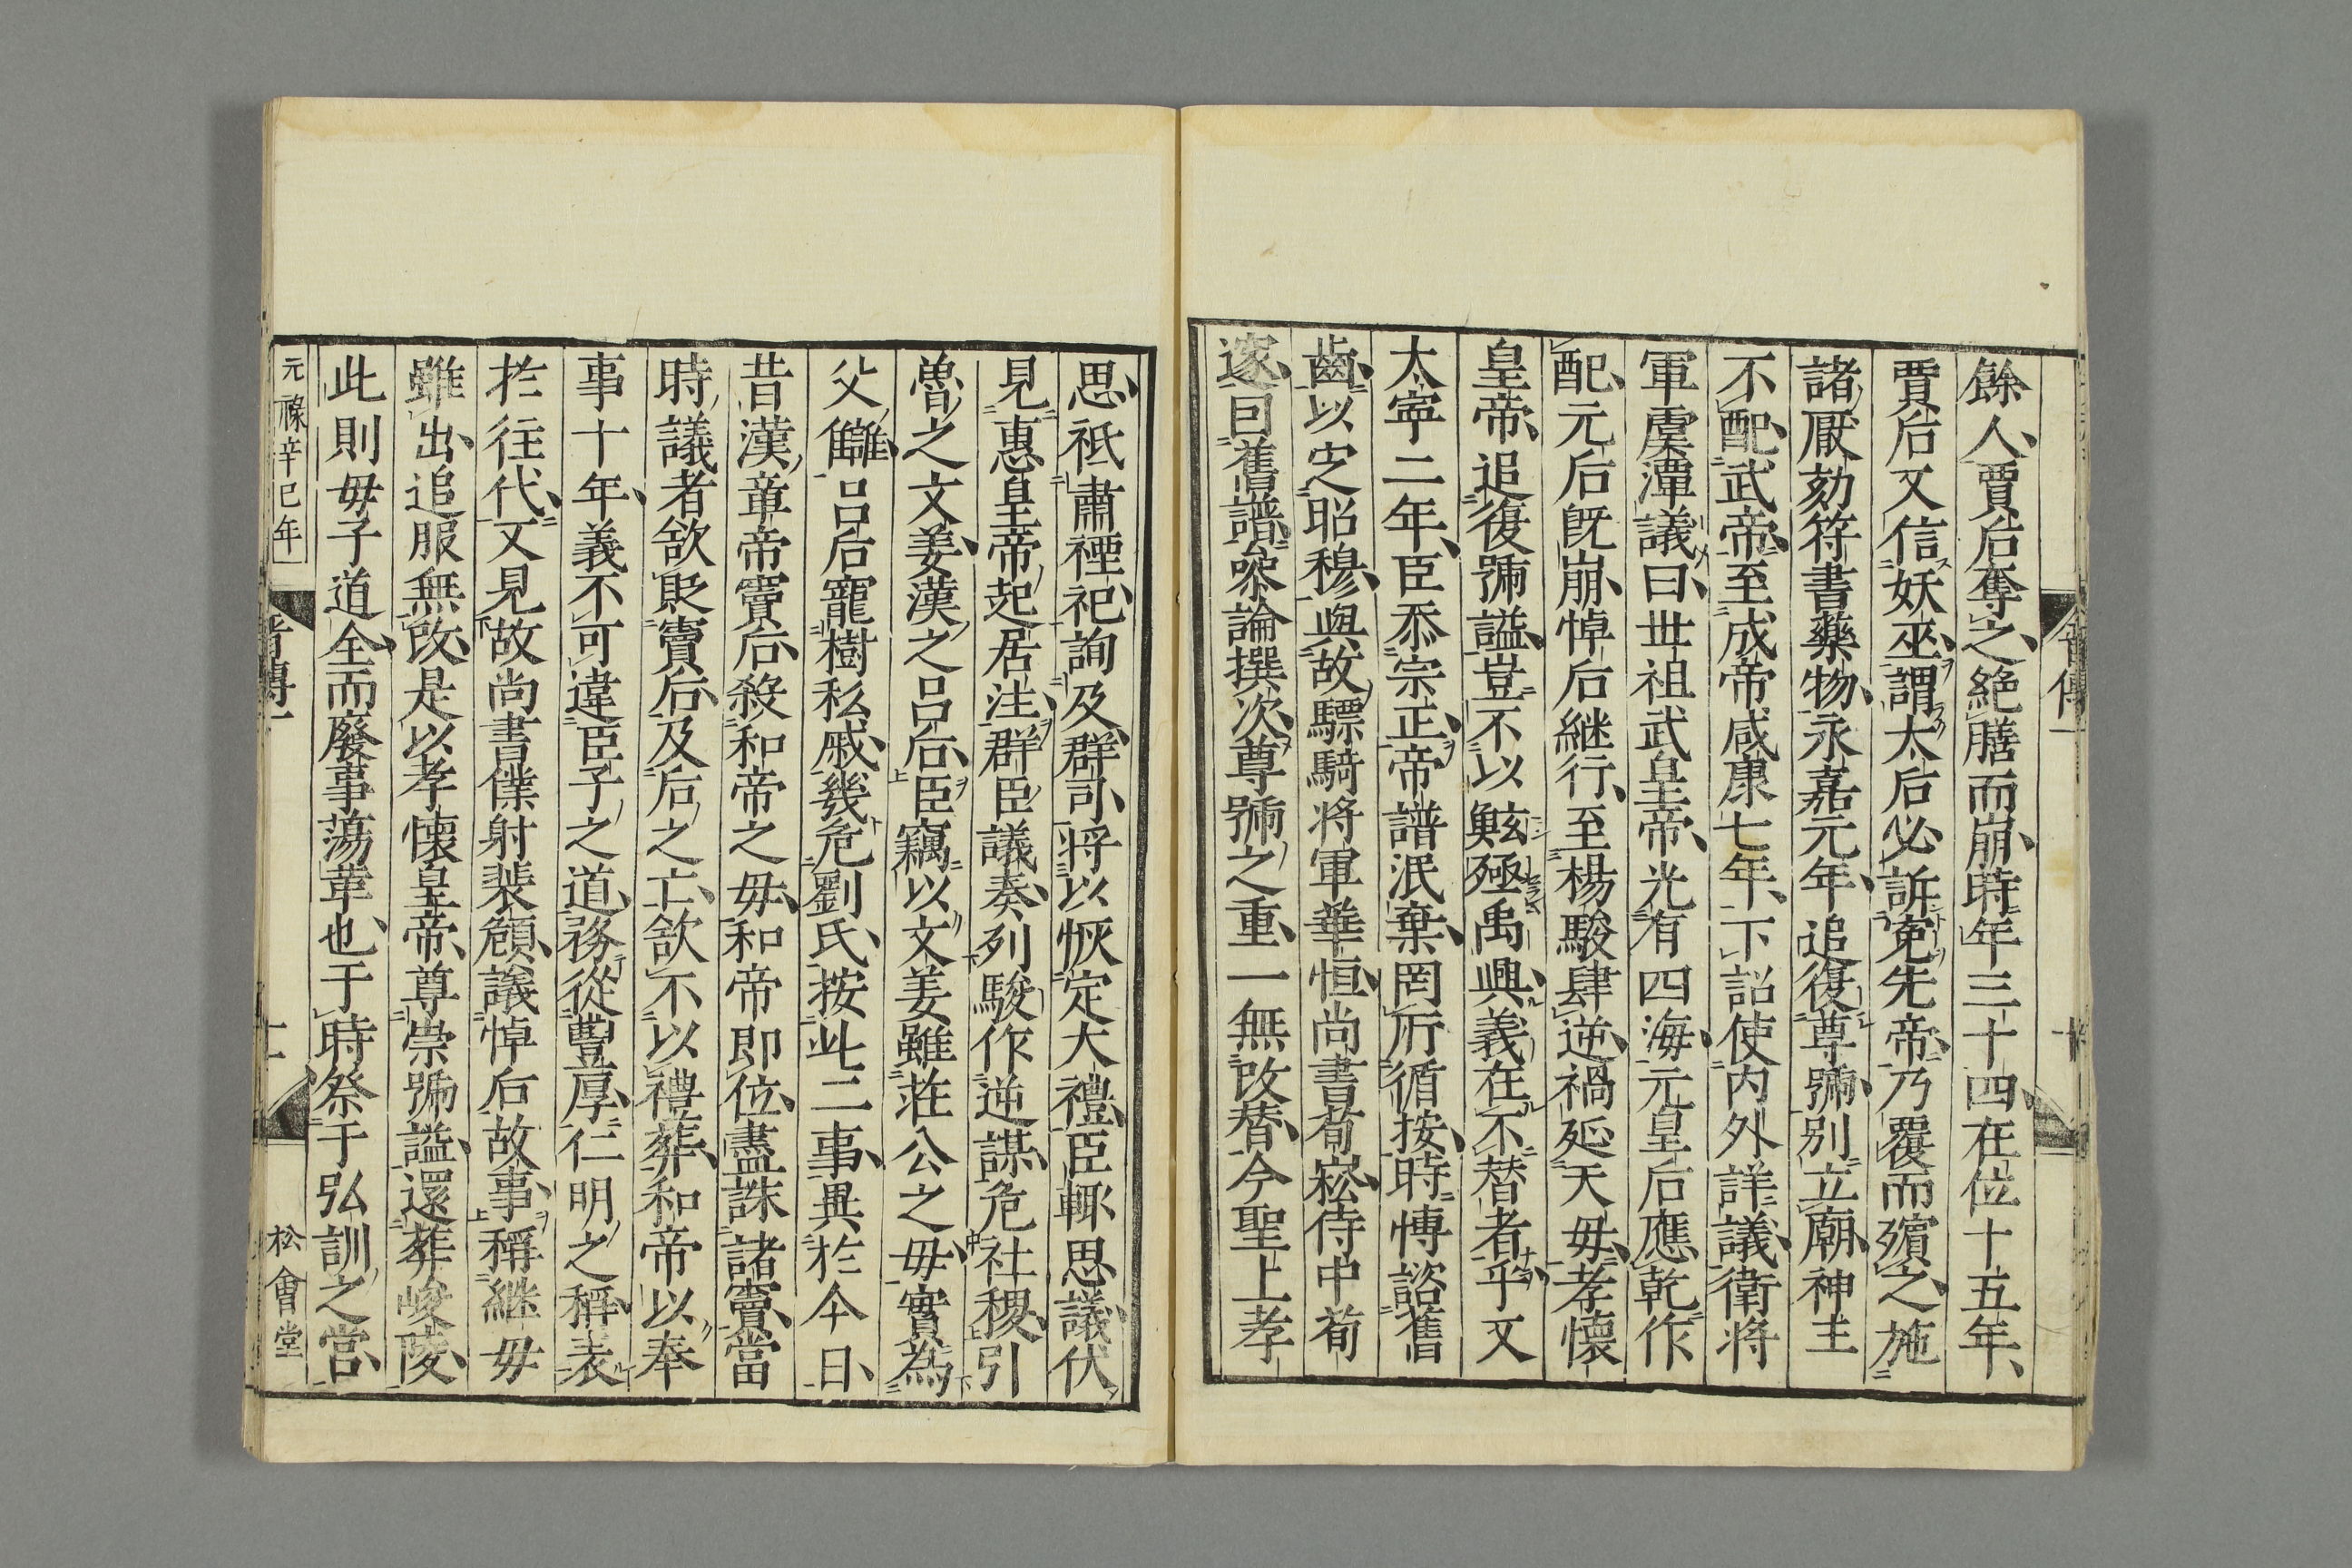 餘人賈后奪之絶膳而崩時年三十四在位十五年
賈后又信妖巫謂太后必訴寃先帝乃覆而殯之施
諸厭劾符書藥物永嘉元年追復尊號別立廟神主
不配武帝至成帝咸康七年下詔使内外詳議衛将
軍虞潭議曰世祖武皇帝光有四海元皇后應乾作
配元后既崩悼后継行至楊駿肆逆禍延天毋孝懷
皇帝追復號謚豈不以鯀殛禹興義在不替者乎又
太寧二年臣忝宗正帝譜泯棄罔所循按時愽諮舊
齒以定昭穆與故驃騎将軍華恒尚書荀崧侍中荀
邃囙舊譜叅論撰次尊號之重一無改替今聖上孝
思祗肅禋祀詢及群司将以恢定大禮臣輙思議伏
見惠皇帝起居注群臣議奏列駿作逆謀危社稷引
魯之文姜漢之呂后臣竊以文姜雖莊公之毋實為
父讎呂后寵樹私戚幾危劉氏按此二事異於今日
昔漢章帝竇后殺和帝之毋和帝即位盡誅諸竇當
時議者欲貶竇后及后之亡欲不以禮葬和帝以奉
事十年義不可違臣子之道務從豐厚仁明之稱表
於往代又見故尚書僕射裴頠議悼后故事稱継毋
雖出追服無改是以孝懷皇帝尊崇號謚還葬峻陵
此則毋子道全而廢事蕩革也于時祭于弘訓之宫
元祿辛巳年
晋傳一
十一
松會堂